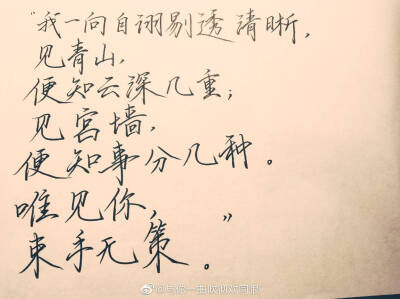 “我一向自诩剔透清晰，
见青山，
便知云深几重；
见宫墙，
便知事分几种。
唯见你，
束手无策。”